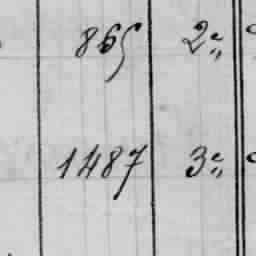 865 2 „
1487 3 „